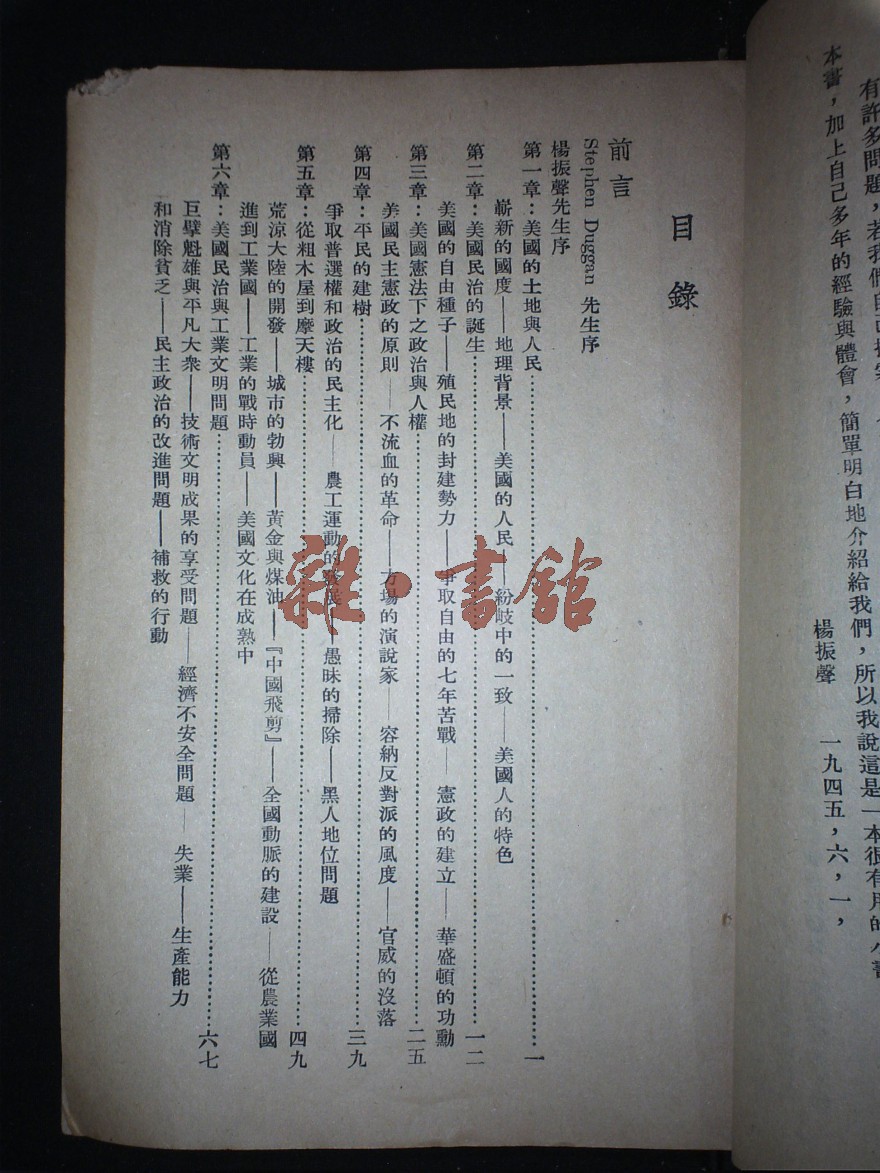 本書，加上自己多年的經驗與體會，簡單明白地介紹給我們，所以我說這是一本很有用的小書
楊振聲 一九四五，六，一，
目錄
前言
Stephen Duggan 先生序
楊振聲先生序
第一章：美國的土地與人民⋯⋯⋯⋯一
嶄新的國度——地理背景——美國的人民——紛岐中的一致——美國人的特色
第二章：美國民治的誕生⋯⋯⋯⋯一二
美國的自由種子——殖民地的封建勢力——爭取自由的七年苦戰——憲政的建立——華盛頓的功勳
第三章：美國憲法下之政治與人權⋯⋯⋯⋯二五
美國民主憲政的原則——不流血的革命——方場的演說家——容納反對派的風度——官威的沒落
第四章：平民的建樹⋯⋯⋯⋯三九
爭取普選權和政治的民主化——農工運動的——愚昧的掃除——黑人地位問題
第五章：從粗木屋到摩天樓⋯⋯⋯⋯四九
荒涼大陸的開發——城市的勃興——黃金與煤油——『中國飛剪』——全國動脈的建設——從農業國
進到工業國——工業的戰時動員——美國文化在成熟中
第六章：美國民治與工業文明問題⋯⋯⋯⋯六七
巨擘魁雄與平凡大衆——技術文明成果的享受問題——經濟不安全問題——失業——生產能力
和消除貧乏——民主政治的改進問題——補救的行動
雜·書館